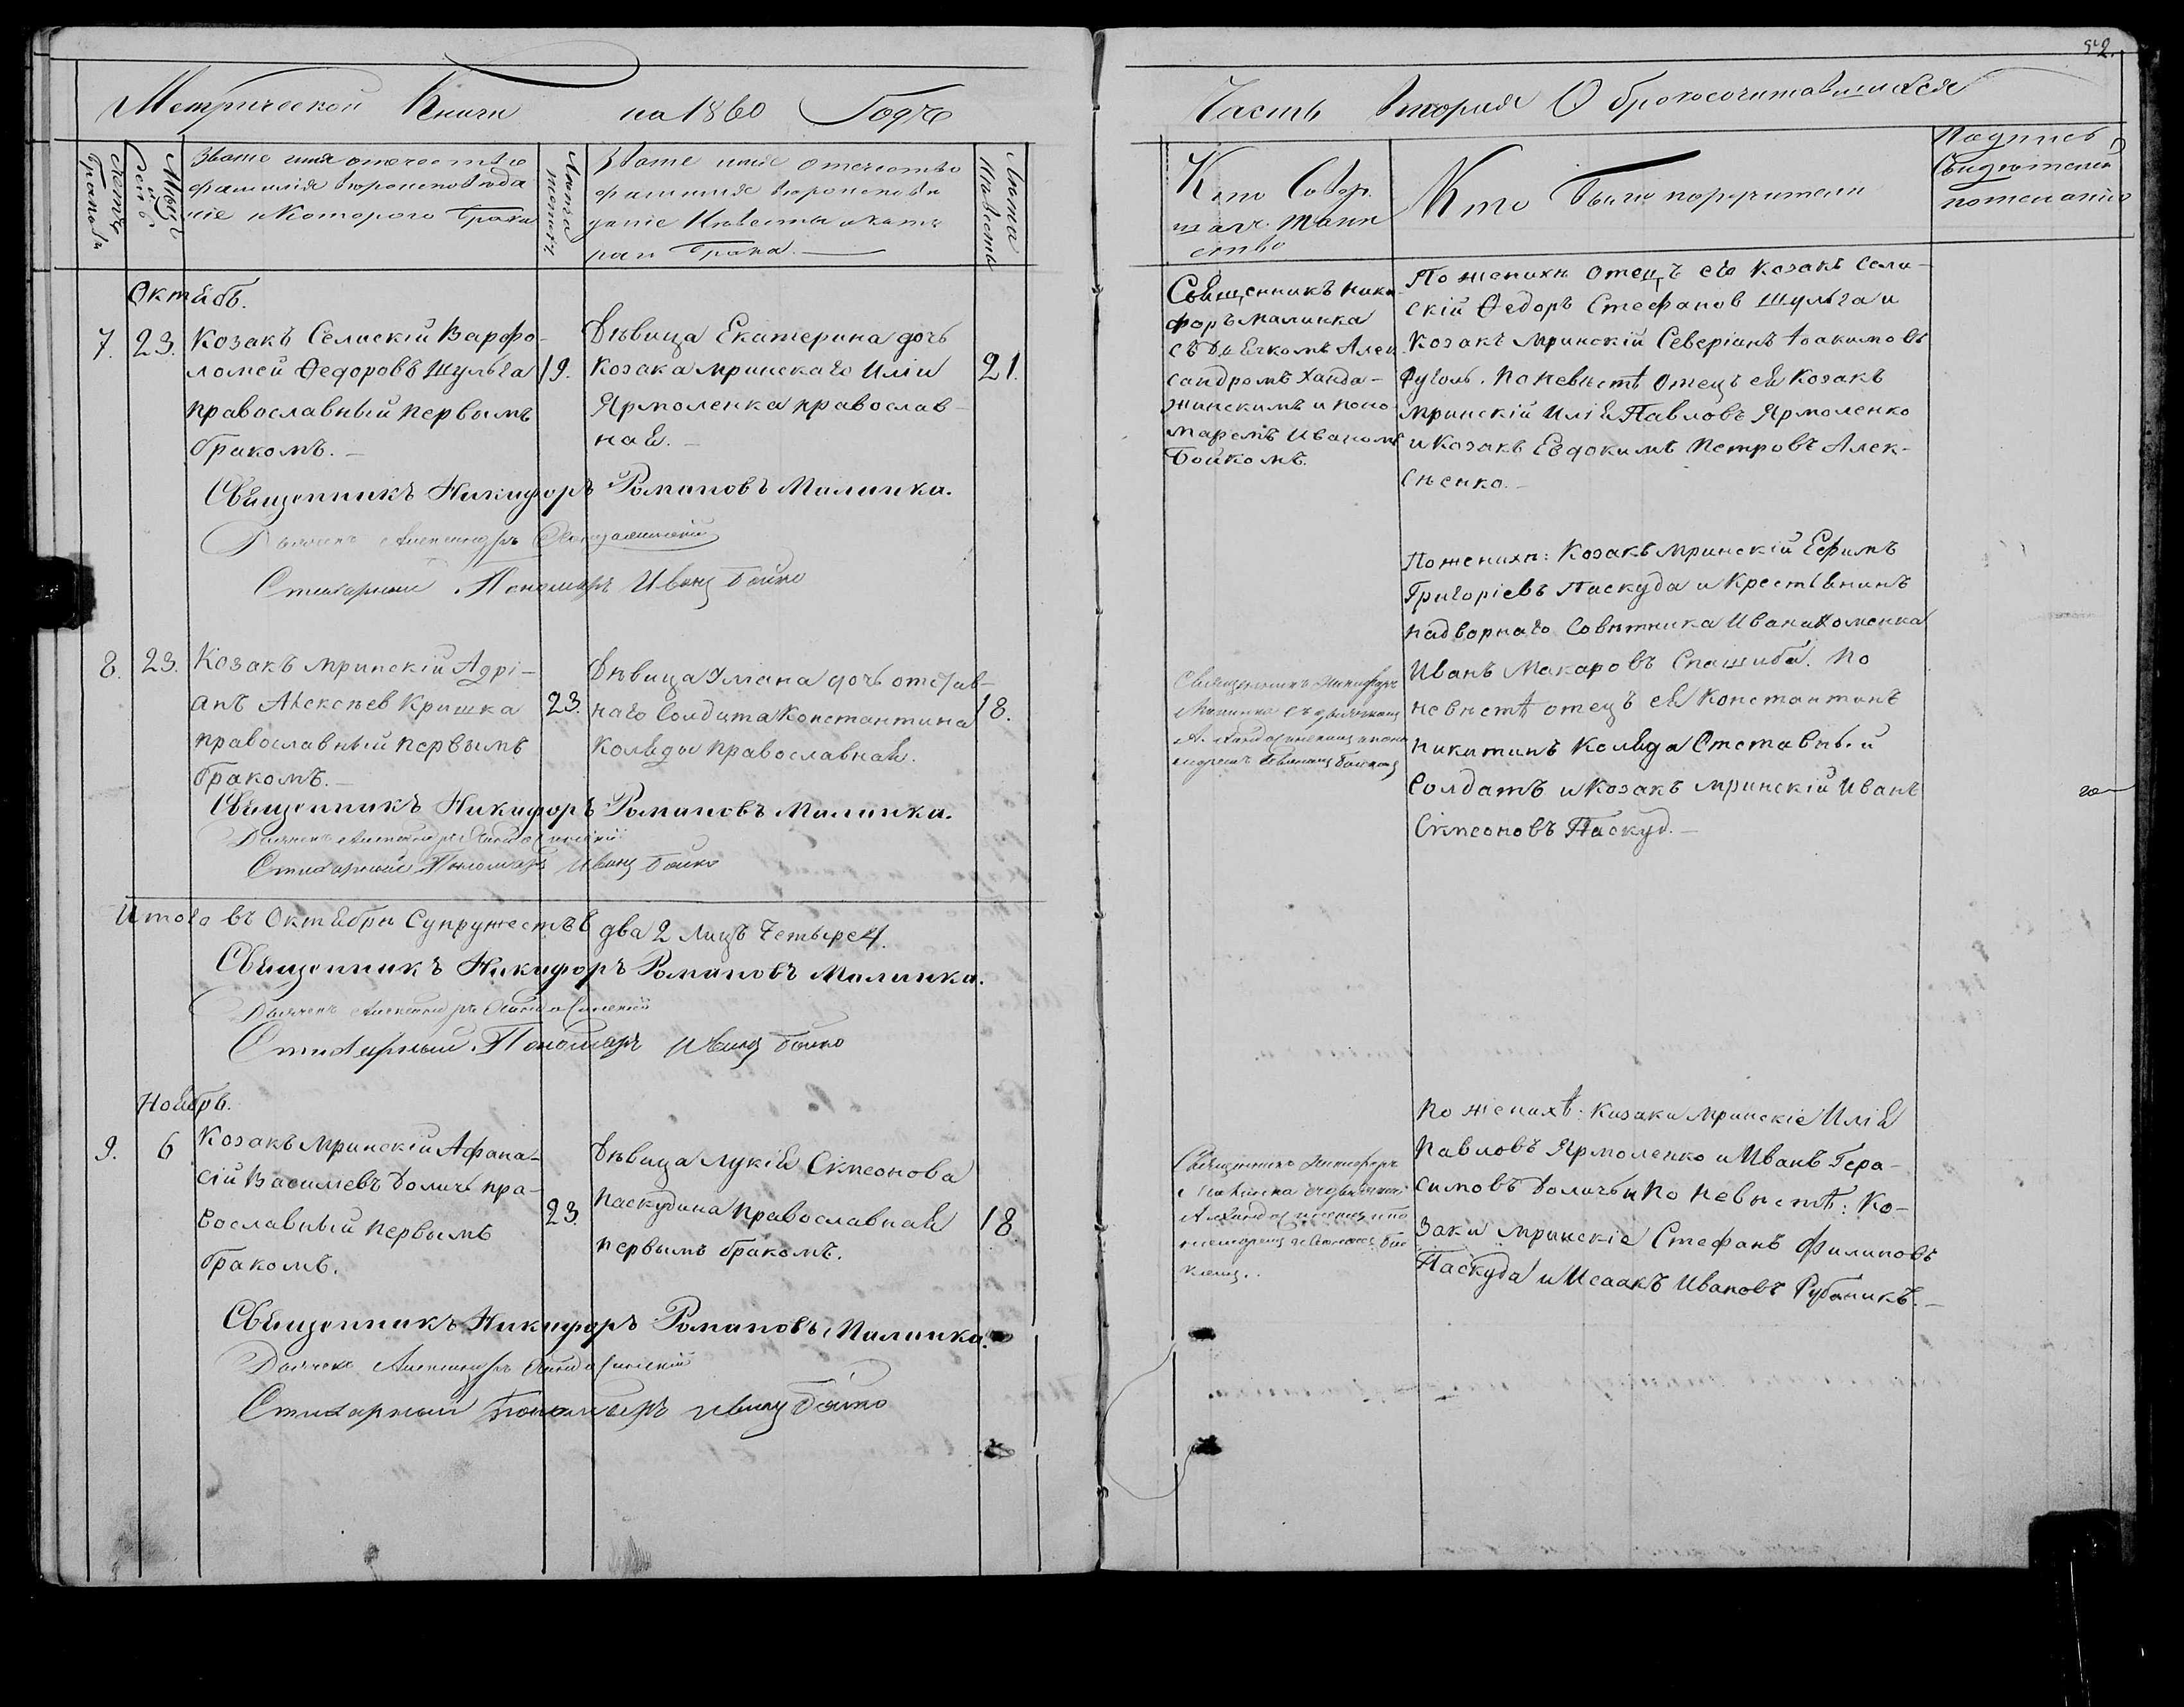 Метрической Книги на 1860 Годъ
Часть вторая О бракосочитавшихся
52.
Счетъ браковъ
Мѣсяцъ и день
Званіе имя отечество
фамилія вѣроисповѣда
ніе и Котораго Брака
Лѣта жениха
Званіе имя отечество
фамилія вѣроисповѣ
даніе Невѣсты и кото
раго Брака
Лѣта Невѣсты
Кто Совер
шалъ Таин
ство
Кто были поручители
Подпись
Свидѣтелей
по желанію
Октябь.
7. 23.
Козакъ Селискій Варфо-
ломей Ѳедоровъ Шульга
православный первымъ
бракомъ.
19.
Дѣвица Екатерина дочь
Козака мринскаго Иліи
Ярмоленка православ-
ная.
21.
Священникъ Ники-
форъ Малинка
съ Дьячкомъ Алек
сандромъ Ханда-
жинскимъ и поно
маремъ Иваномъ
Бойкомъ.
По женихѣ отецъ его Козакъ Сели-
скій Ѳедоръ Стефанов Шульга и
Козакъ Мринскій Северіанъ Іоакимовъ
Руголь. По невѣстѣ отецъ ея Козакъ
мринскій Илія Павловъ Ярмоленко
и Козакъ Евдокимъ Петровъ Алек-
сѣенко.
Священникъ Никифоръ Романовъ Малинка.
Дьячекъ Александръ Хандажинскій
Стихарный Пономарь Иванъ Бойко
8. 23.
Козакъ мринскій Адрі-
анъ Алексѣев Кришка
православный первымъ
бракомъ.
23.
Дѣвица Уліана дочь отстав-
наго Солдата Константина
Коляды православная.
18.
Священникъ Никифоръ
Малинка съ дьячкомъ
А. Хандажинскимъ и поно
маремъ Иваномъ Бойкомъ
По женихѣ: Козакъ мринскій Ефимъ
Григоріевъ Паскуда и Крестьянинъ
надворнаго Совѣтника Ивана Хоменка
Иванъ Макаровъ Спашиба. По
невѣстѣ отецъ ея Константинъ
никитинъ Коляда Отставный
Солдатъ и Козакъ мринскій Иванъ
Сімеоновъ Паскуд.
Священникъ Никифоръ Романовъ Малинка.
Дьячекъ Александръ Хандажинскій
Стихарный Пономарь Иванъ Бойко
Итого въ Октябрѣ Супружествъ два 2 лицъ Четыре 4.
Священникъ Никифоръ Романовъ Малинка.
Дьячекъ Александръ Хандажинскій
Стихарный Пономарь Иванъ Бойко
Ноябрь.
9. 6
Козакъ Мринскій Афана-
сій Василіевъ Доличъ пра-
вославный первымъ
бракомъ.
23.
Дѣвица Лукія Сімеонова
Паскудина православная
первымъ бракомъ.
18.
Священникъ Никифоръ
Малинка съ дьячкомъ
А. Хандажинскимъ и по
номаремъ Иваномъ Бой
комъ.
По женихѣ: Казаки мринскіе Илія
Павловъ Ярмоленко и Иванъ Гера-
симовъ Доличъ и по невѣстѣ: Ко-
заки мринскіе Стефанъ Филиповъ
Паскуда и Исаакъ Ивановъ Рубаникъ.
Священникъ Никифоръ Романовъ Малинка.
Дьячекъ Александръ Хандажинскій
Стихарный Пономарь Иванъ Бойко